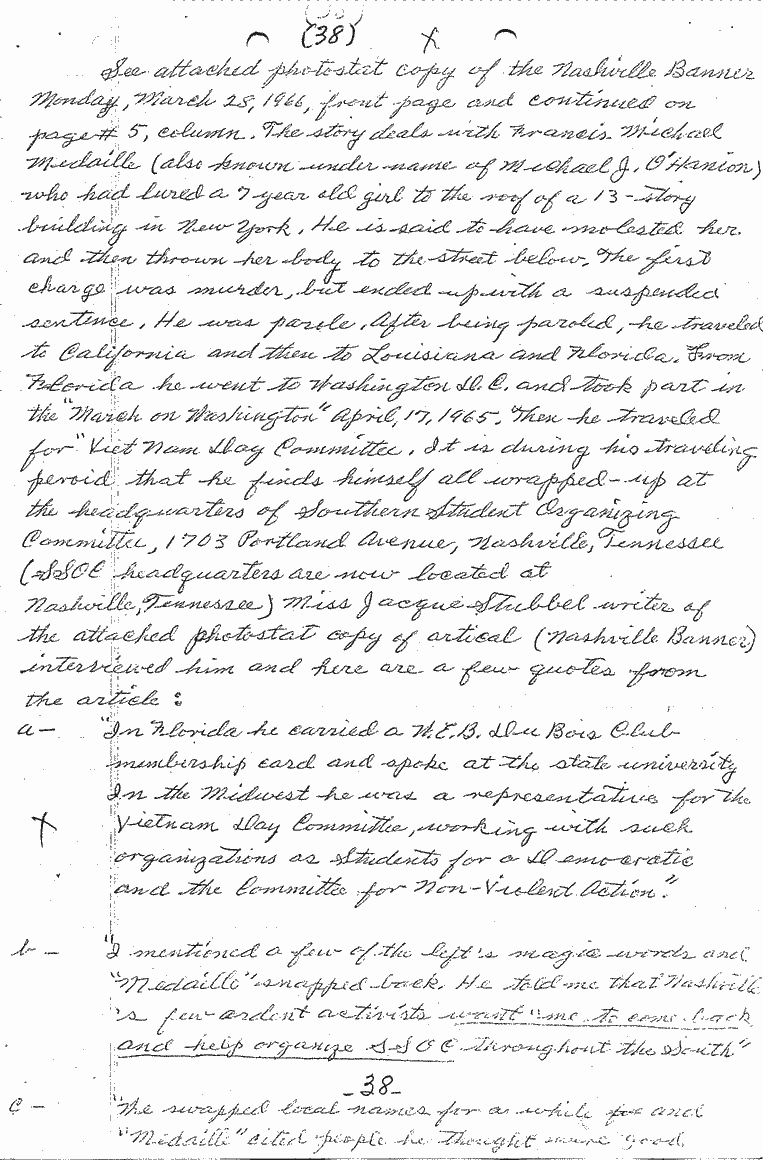 (38) X
See attached photostat copy of the Nashville Banner
Monday, March 28, 1966, front page and continued on
page # 5, column. The story deals with Francis Michael
Medaille (also known under name of Michael J. O'Hanion)
who had lured a 7 year old girl to the roof of a 13-story
building in New York. He is said to have molested her
and then thrown her body to the street below. The first
charge was murder, but ended up with a suspended
sentence. He was parole. After being paroled, he traveled
to California and then to Louisiana and Florida. From
Florida he went to Washington D.C. and took part in
the "March on Washington" April, 17, 1965. Then he traveled
for "Viet Nam Day Committee. It is during his traveling
peroid that he finds himself all wrapped-up at
the headquarters of Southern Student Organizing
Committee, 1703 Portland Avenue, Nashville, Tennessee
(SSOC headquarters are now located at
Nashville, Tennessee) Miss Jacque Stubbel writer of
the attached photostat copy of artical (Nashville Banner)
interviewed him and here are a few quotes from
the article :
a- "In Florida he carried a W.E.B. Du Bois Club
membership card and spoke at the state university
In the Midwest he was a representative for the
X Vietnam Day Committee, working with such
organizations as Students for a Democratic
and the Committee for Non-Violent Action."
b- "I mentioned a few of the left's magic words and
"Medaille" snapped back. He told me that Nashville
's few ardent activists want "me to come back
and help organize SSOC throughout the South"
-38-
c- "We swapped local names for a while for and
"Medaille" cited people he thought were good